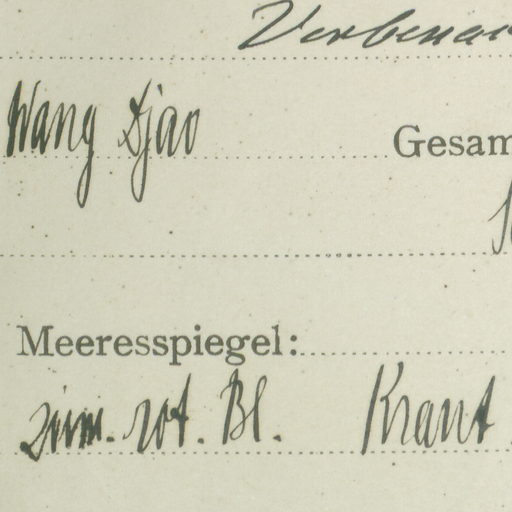 Verbenac
Wang Djao Gesam
Meeresspiegel:
rot. Bl. Kraut